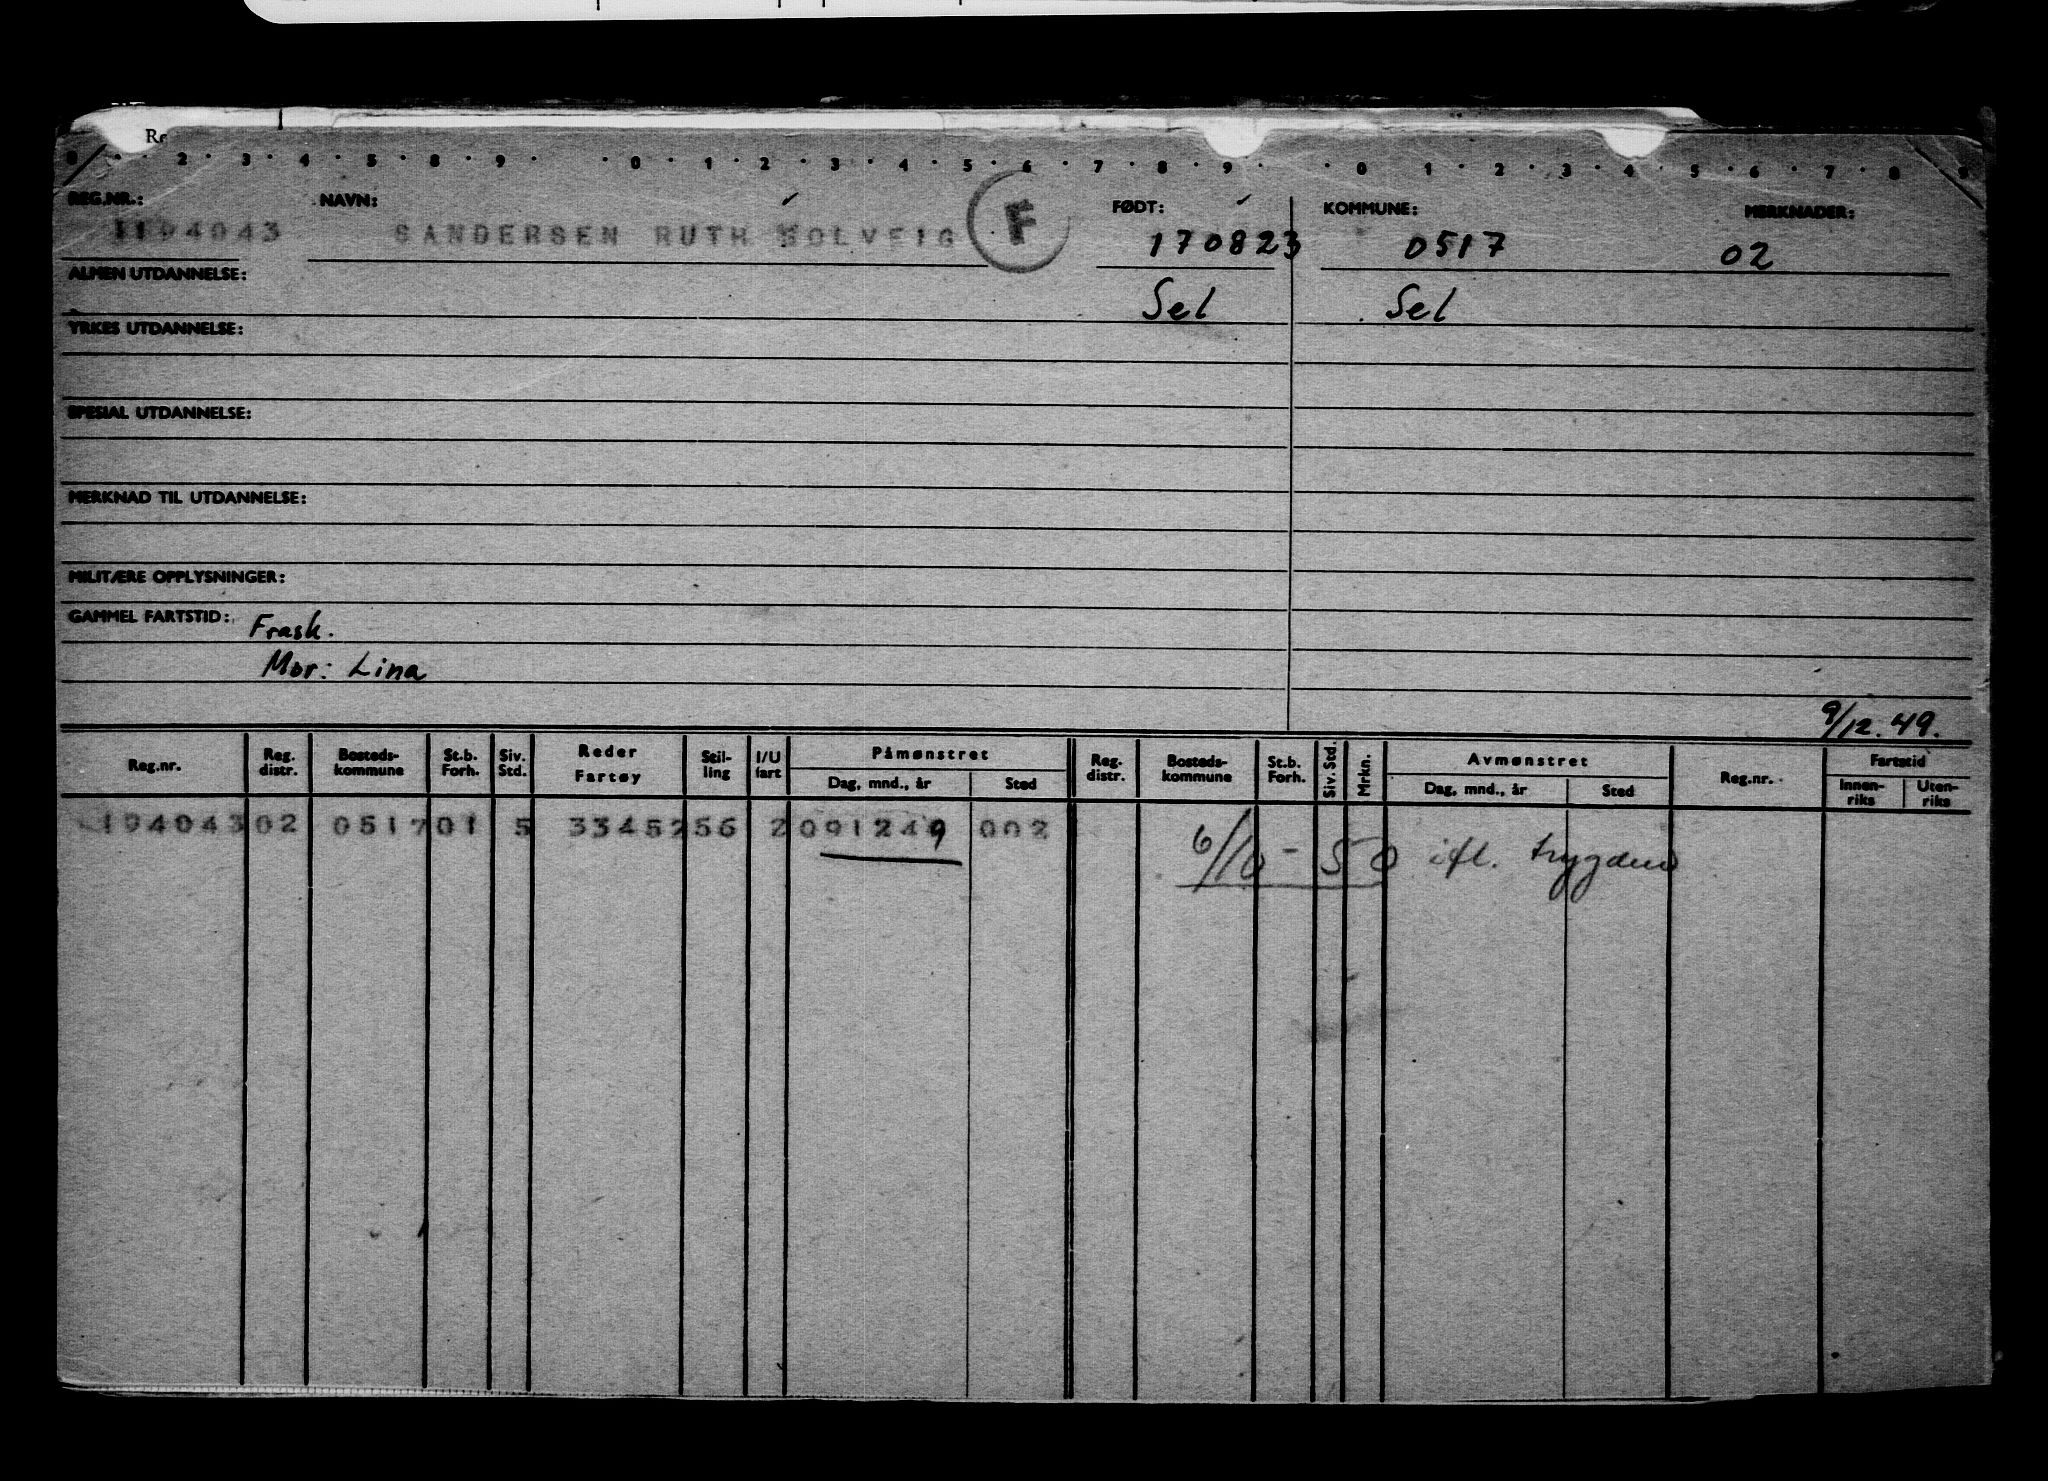 Re
0 . . 2 . 3 . 4 . 5 . 8 . 9 . . 0 . 1 . 2 . 3 . 4 . 5 . 6 . 7 . 8 . 9 . . 0 1 . 2 . 3 . 4 . 5 . 6 . 7 . 8 . 9
REG.NR.: NAVN: FØDT: KOMMUNE: MERKNADER:
1194043 SANDERSEN RUTH SOLVEIG F 170823 0517 02
ALMEN UTDANNELSE: Sel Sel
YRKES UTDANNELSE:
SPESIAL UTDANNELSE:
MERKNAD TIL UTDANNELSE:
MILITÆRE OPPLYSNINGER:
GAMMEL FARTSTID: Frask.
Mor: Lina
9/12.49.
Reg.nr. Reg. distr. Bosteds-kommune St.b. Forh. Siv. Std. Reder Fartøy Stil-ling I/U fart Påmønstret Dag, mnd., år Sted Reg. distr. Bosteds-kommune St.b. Forh. Siv. Std. Mrkn. Avmønstret Dag, mnd., år Sted Reg.nr. Fartstid Innen-riks Uten-riks
194043 02 0517 01 5 33452 56 2 091249 002
6/10 - 50 ifl. trygden